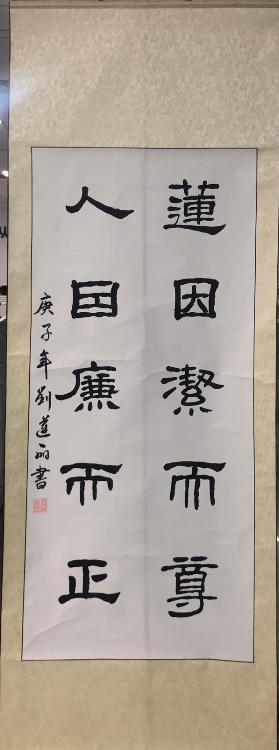 蓮因潔而尊
人因廉而正
庚子年劉蓮丽書